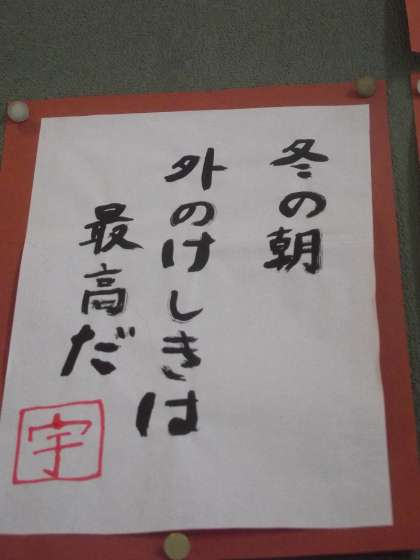 冬の朝
外のけしきは
最高だ
宇